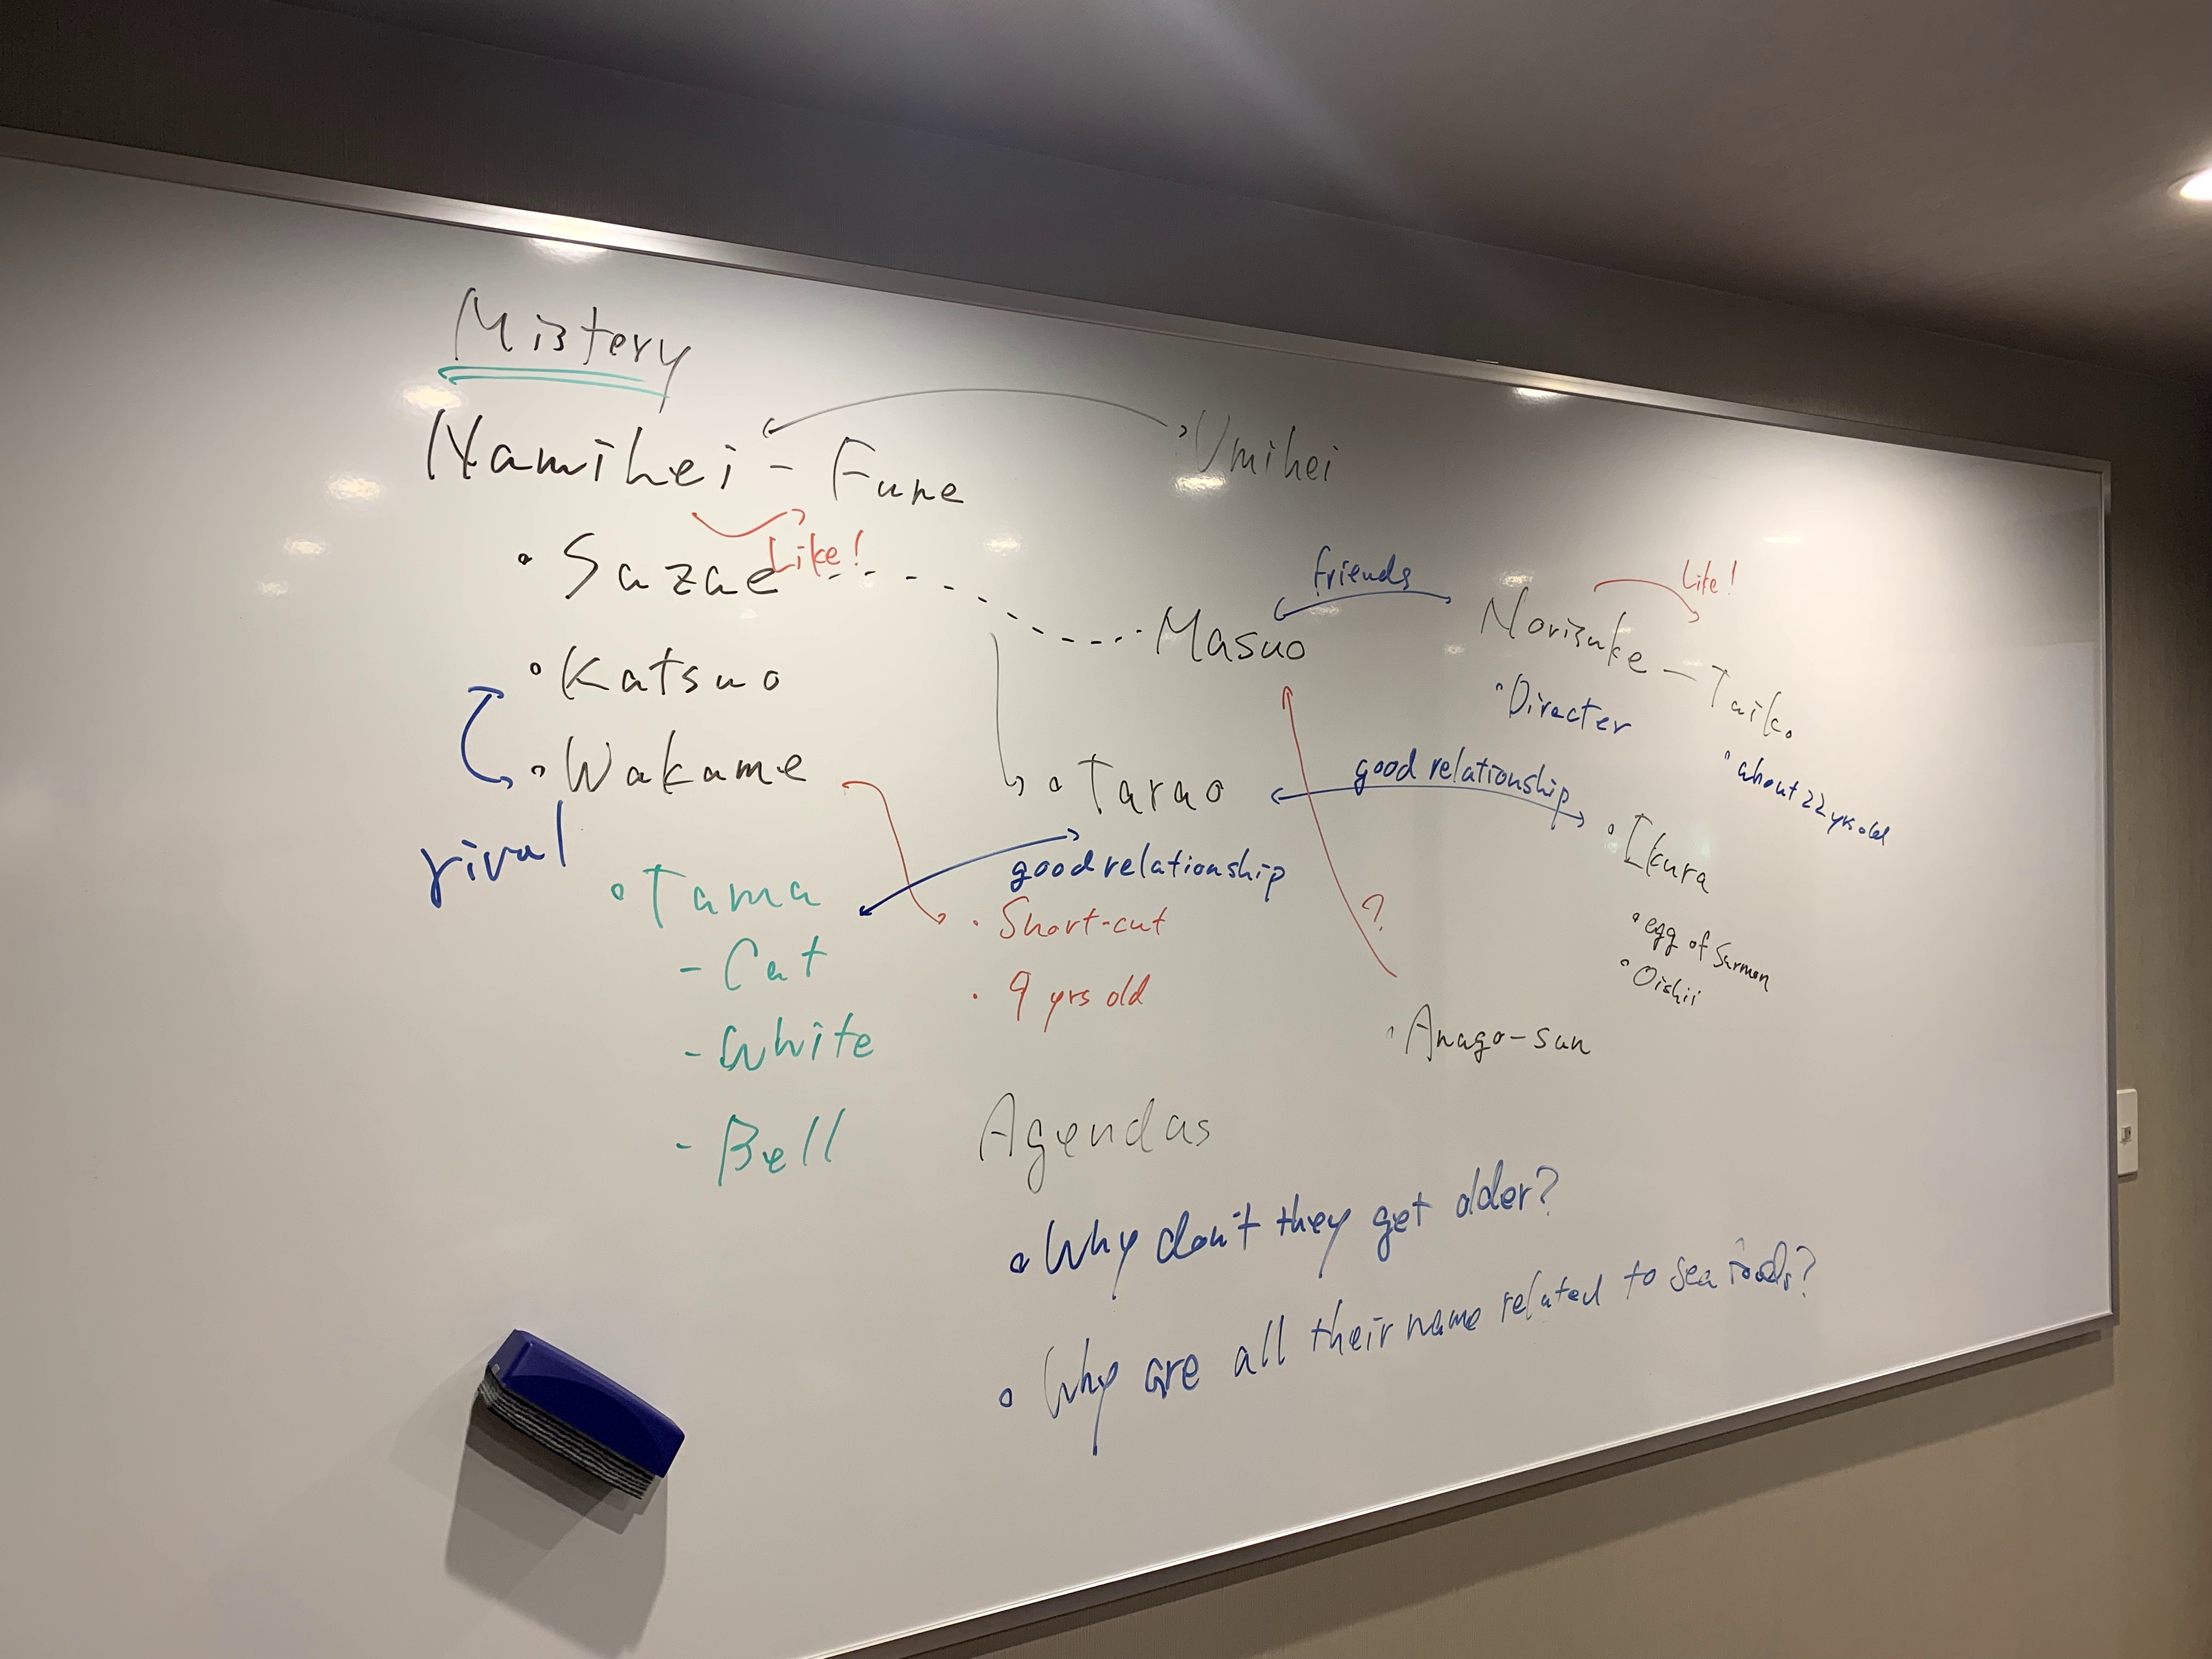 Mistery
Namihei - Fune
Umihei
Like!
• Sazae
Masuo
friends
Norisuke - Taiko
Like!
• Directer
• about 22 yrs old
• Katsuo
• Wakame
rival
• Tarao
good relationship
• Ikura
• egg of Sarmon
• Oishii
• Tama
- Cat
- White
- Bell
good relationship
• Short-cut
• 9 yrs old
?
• Anago-san
Agendas
• Why don't they get older?
• Why are all their name related to sea foods?